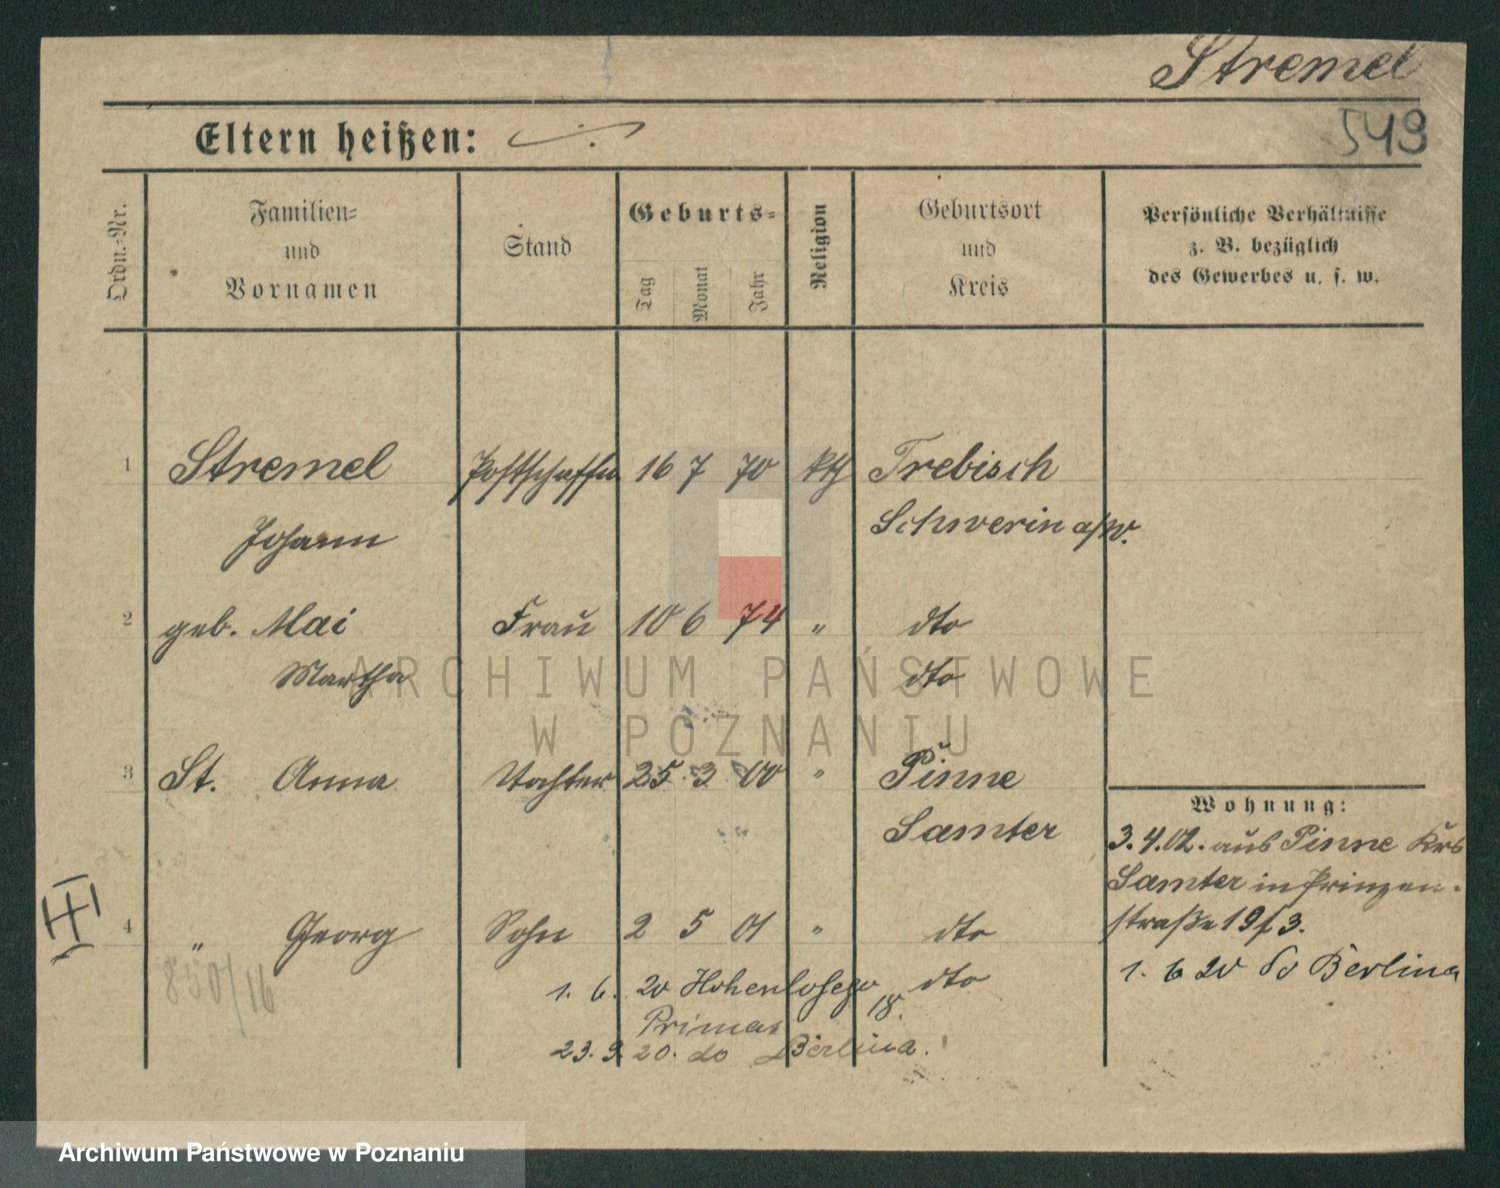 Stremel
549
Eltern heißen: ./.
Ordn.=Nr.
Familien=
und
Vornamen
Stand
Geburts=
Tag
Monat
Jahr
Religion
Geburtsort
und
Kreis
Persönliche Verhältnisse
z. B. bezüglich
des Gewerbes u. s. w.
1 Stremel Postschaffn 16 7 70 kth Trebisch
Johann Schwerin a/W.
2 geb. Mai Frau 10 6 74 " dto
Martha dto
ARCHIWUM PAŃSTWOWE
W POZNANIU
3 St. Anna Tochter 25 3 00 " Pinne
Samter
Wohnung:
3.4.02. aus Pinne Krs
Samter in Prinzen-
straße 19 f 3.
1. 6 20 do Berlina
III
4 " Georg Sohn 2 5 01 " dto
dto
850/16
1. 6. 20 Hohenlohego 18.
Primas
23. 9. 20. do Berlina.
Archiwum Państwowe w Poznaniu